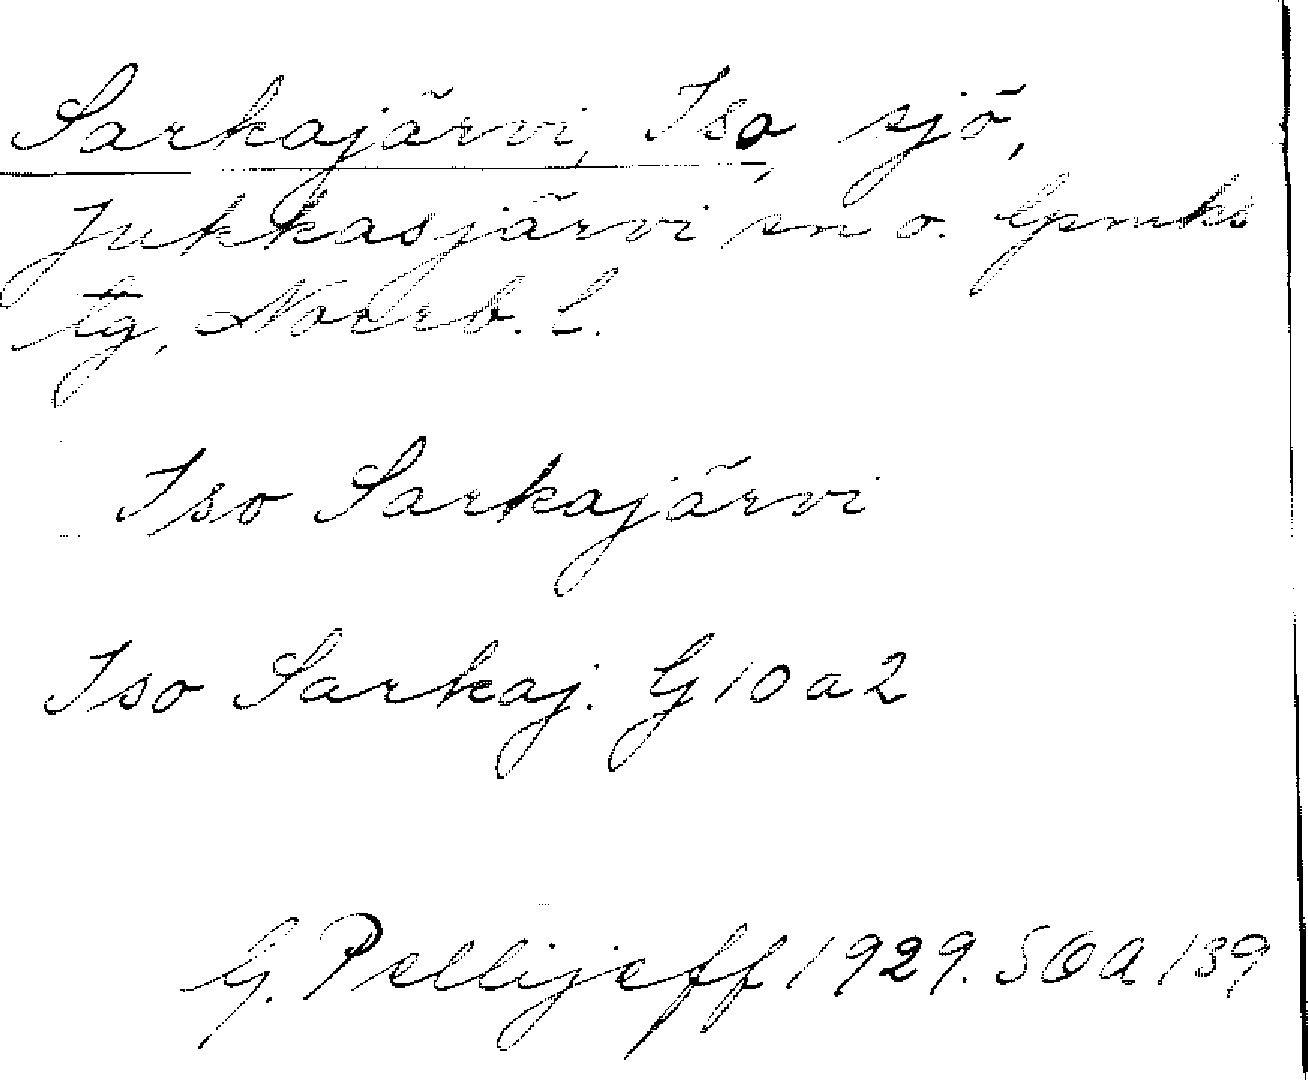 Sarkajärvi, Iso, sjö,
Jukkasjärvi sn o. lpmks
tg, Norrb. l.
Iso Sarkajärvi
Iso Sarkaj. G 10 a 2
G. Pellijeff 1929. SOA 139